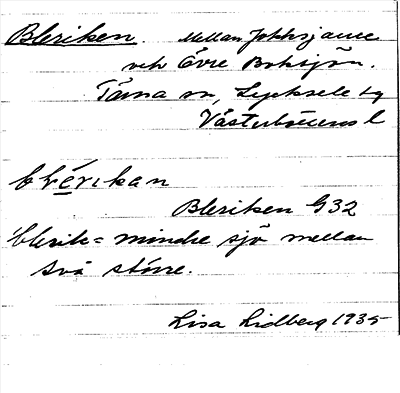 Bleriken. Mellan Jokksjaure
och Övre Boksjön.
Tärna sn, Lycksele tg
Västerbottens l
blérikan
Bleriken G32
blerik= mindre sjö mellan
två större.
Lisa Lidberg 1935